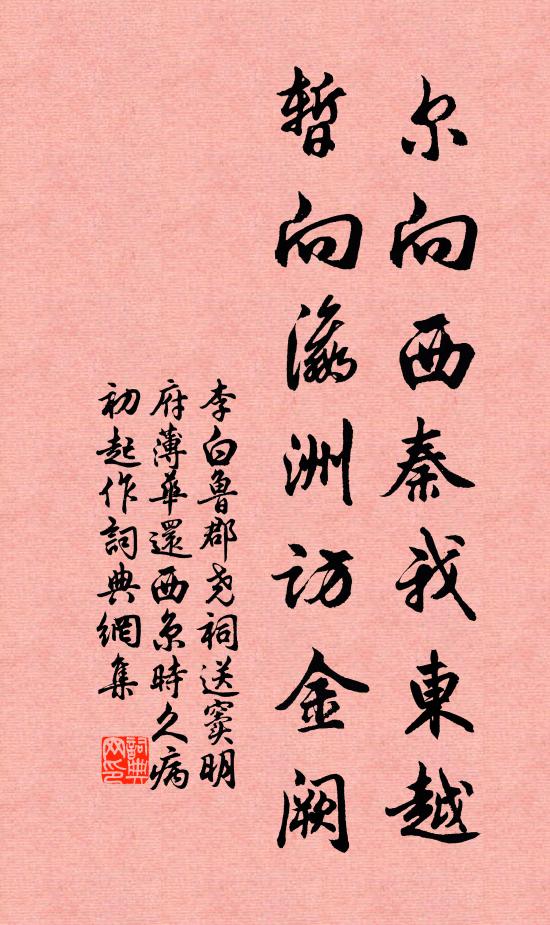 尔向西秦我東越
暫向瀛洲訪金闕
李白魯郡尭祠送竇明
府薄華還西京時久病
初起作詞典網集
詞典網印